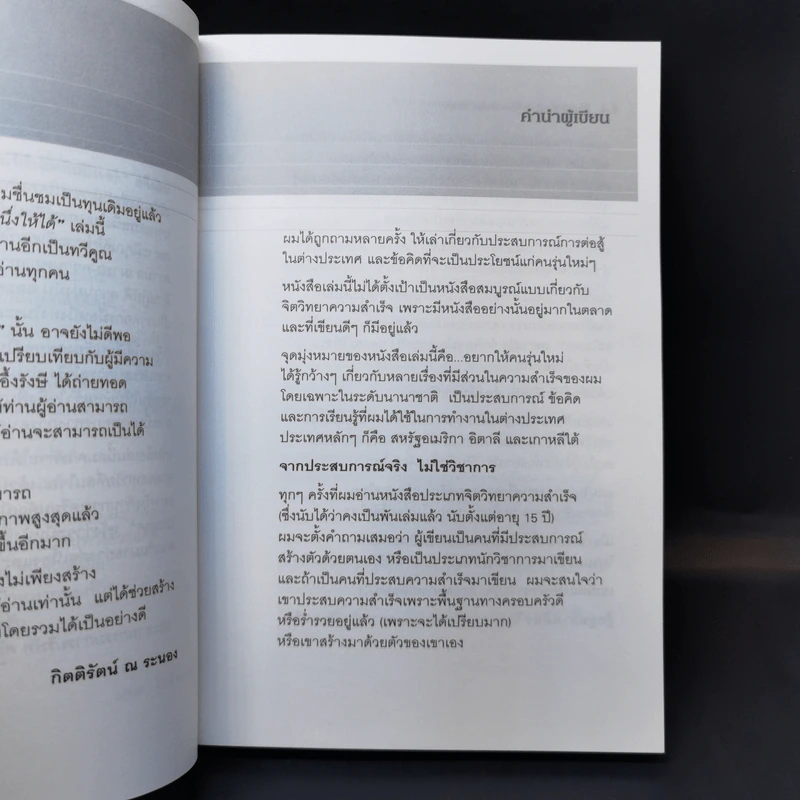 มชื่นชมเป็นทุนเดิมอยู่แล้ว
นึ่งให้ได้” เล่มนี้
านอีกเป็นทวีคูณ
อ่านทุกคน
” นั้น อาจยังไม่ดีพอ
เปรียบเทียบกับผู้มีความ
อึ้งรังษี ได้ถ่ายทอด
ท่านผู้อ่านสามารถ
อ่านจะสามารถเป็นได้
มารถ
ภาพสูงสุดแล้ว
ขึ้นอีกมาก
งไม่เพียงสร้าง
อ่านเท่านั้น แต่ได้ช่วยสร้าง
โดยรวมได้เป็นอย่างดี
กิตติรัตน์ ณ ระนอง
คำนำผู้เขียน
ผมได้ถูกถามหลายครั้ง ให้เล่าเกี่ยวกับประสบการณ์การต่อสู้
ในต่างประเทศ และข้อคิดที่จะเป็นประโยชน์แก่คนรุ่นใหม่ๆ
หนังสือเล่มนี้ไม่ได้ตั้งเป้าเป็นหนังสือสมบูรณ์แบบเกี่ยวกับ
จิตวิทยาความสำเร็จ เพราะมีหนังสืออย่างนั้นอยู่มากในตลาด
และที่เขียนดีๆ ก็มีอยู่แล้ว
จุดมุ่งหมายของหนังสือเล่มนี้คือ...อยากให้คนรุ่นใหม่
ได้รู้กว้างๆ เกี่ยวกับหลายเรื่องที่มีส่วนในความสำเร็จของผม
โดยเฉพาะในระดับนานาชาติ เป็นประสบการณ์ ข้อคิด
และการเรียนรู้ที่ผมได้ใช้ในการทำงานในต่างประเทศ
ประเทศหลักๆ ก็คือ สหรัฐอเมริกา อิตาลี และเกาหลีใต้
จากประสบการณ์จริง ไม่ใช่วิชาการ
ทุกๆ ครั้งที่ผมอ่านหนังสือประเภทจิตวิทยาความสำเร็จ
(ซึ่งนับได้ว่าคงเป็นพันเล่มแล้ว นับตั้งแต่อายุ 15 ปี)
ผมจะตั้งคำถามเสมอว่า ผู้เขียนเป็นคนที่มีประสบการณ์
สร้างตัวด้วยตนเอง หรือเป็นประเภทนักวิชาการมาเขียน
และถ้าเป็นคนที่ประสบความสำเร็จมาเขียน ผมจะสนใจว่า
เขาประสบความสำเร็จเพราะพื้นฐานทางครอบครัวดี
หรือร่ำรวยอยู่แล้ว (เพราะจะได้เปรียบมาก)
หรือเขาสร้างมาด้วยตัวของเขาเอง